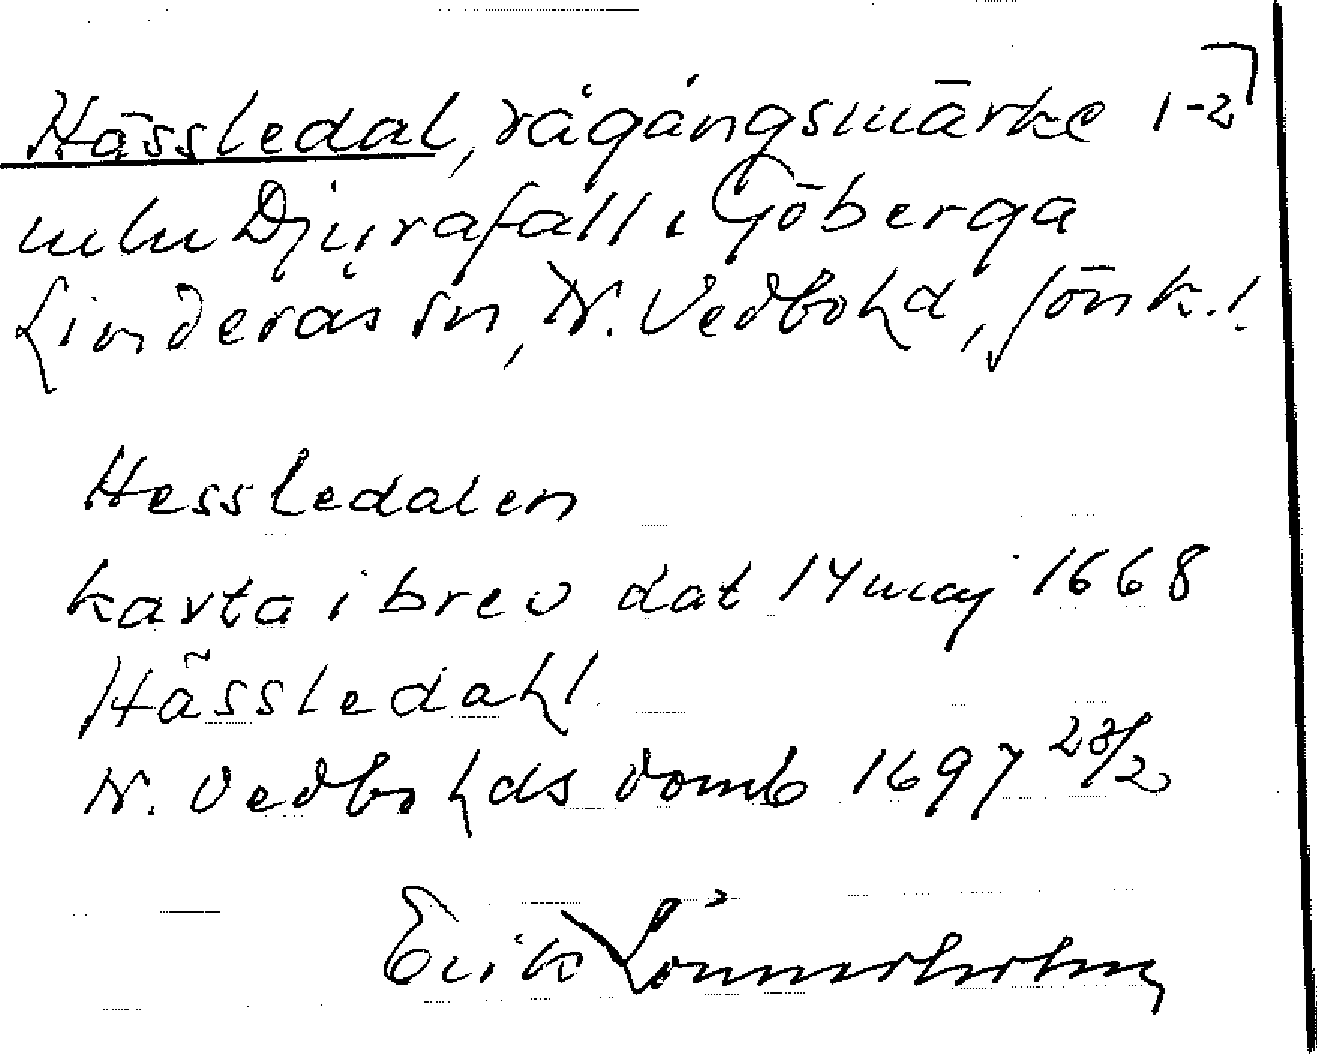 Hässledal, rågångsmärke 1-2
mln Djurafall i Göberga
Linderås sn, N. Vedbo hd, Jönk. l.
Hessledalen
karta i brev dat 14 maj 1668
Hässledahl
N. Vedbo hds domb 1697 28/2
Erik Lönnerholm